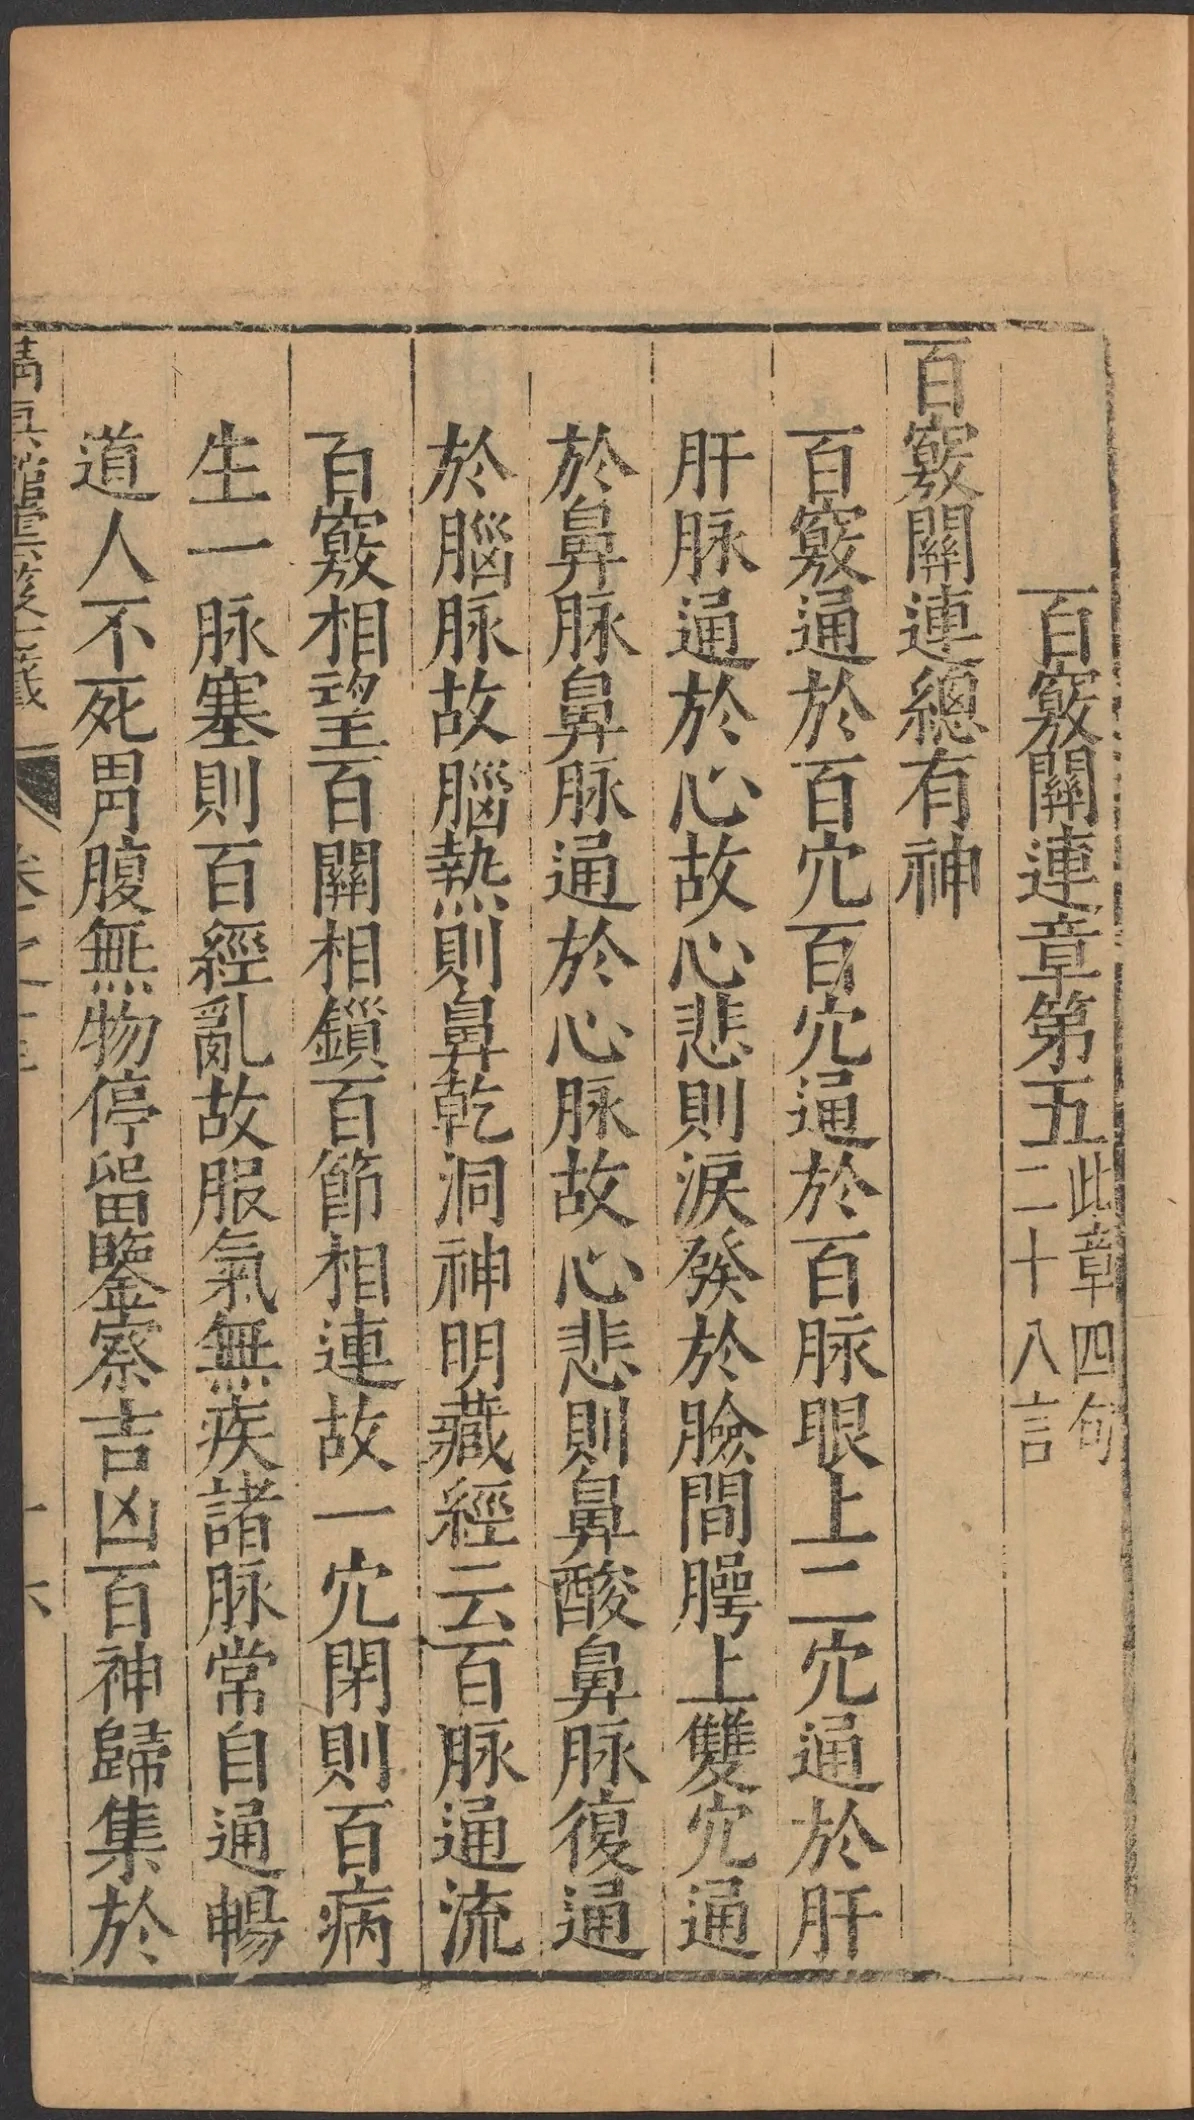 百竅關連章第五此章四句二十八言
百竅關連總有神
百竅通於百穴百穴通於百脉眼上二穴通於肝
肝脉通於心故心悲則淚發於臉間腭上雙穴通
於鼻脉鼻脉通於心脉故心悲則鼻酸鼻脉復通
於腦脉故腦熱則鼻乾洞神明藏經云百脉通流
百竅相望百關相鎖百節相連故一穴閉則百病
生一脉塞則百經亂故服氣無疾諸脉常自通暢
道人不死胃腹無物停留鑒察吉凶百神歸集於
清真館雲笈七籤 卷之十 十六